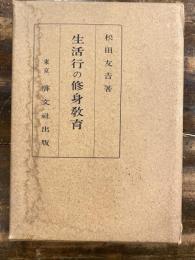 松田友吉著
生活行の修身教育
東京 啓文社出版